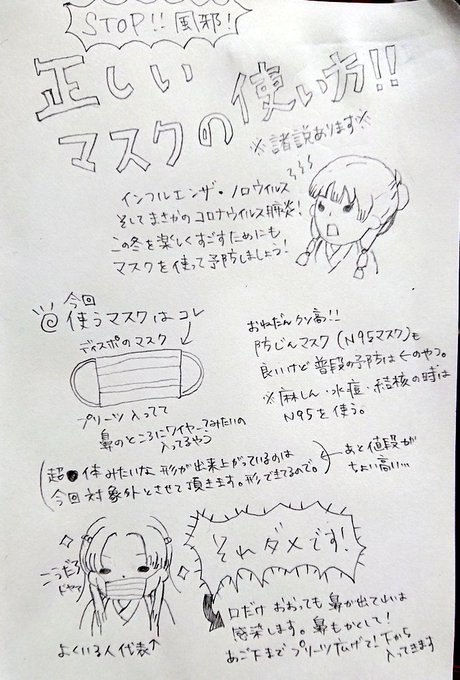 STOP!! 風邪!
正しい
マスクの使い方!!
※諸説あります※
インフルエンザ・ノロウイルス
そしてまさかのコロナウイルス肺炎!
この冬を楽しくすごすためにも
マスクを使って予防しましょう!
今回
使うマスクはコレ
ディスポのマスク
プリーツ入ってて
鼻のところにワイヤーてみたいの
入ってるやつ
おねだんクソ高っ!!
防じんマスク(N95マスク)も
良いけど普段の予防は←のやつ。
※麻しん・水痘・結核の時は
N95を使う。
(超●体みたいな形が出来上がっているのは
今回対象外とさせて頂きます。形できてるので。)
←あと値段が
ちょい高い…
こうだろ
よくいる人代表↑
それダメです!
口だけおおっても鼻が出てれば
感染します。鼻もかくして!
あご下までプリーツ広げて!下から
入ってきます